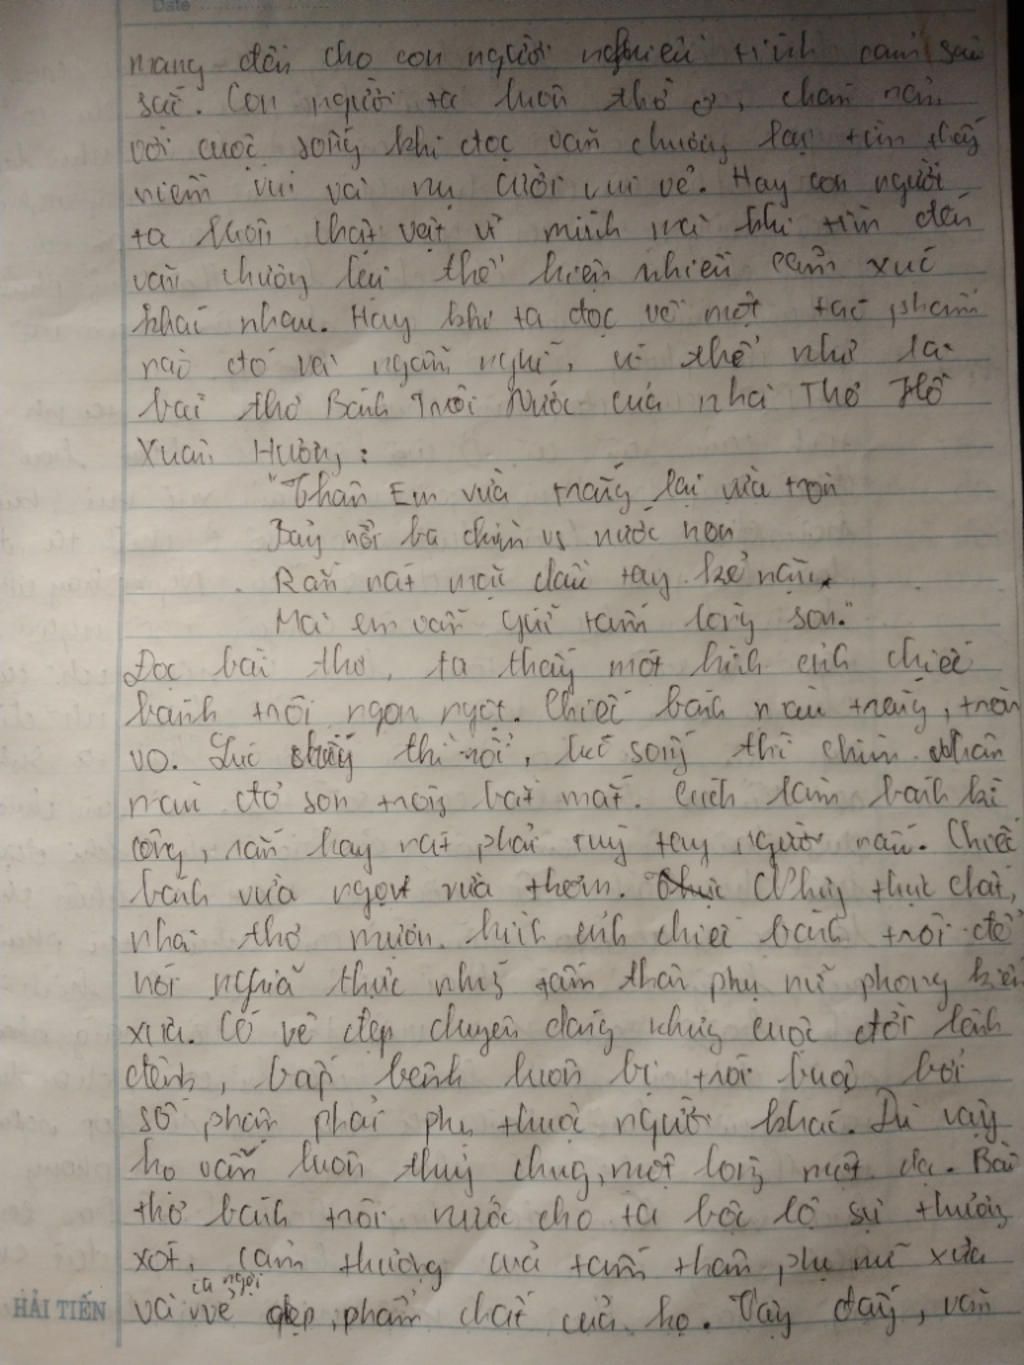 Date
mang đến cho con người nhiều tình cảm sâu
sắc. Con người ta luôn thở ơ, chán nản
với cuộc sống khi đọc văn chương lại tìm thấy
niềm vui và nụ cười vui vẻ. Hay con người
ta luôn chật vật vì mình mà khi tìm đến
văn chương lại thể hiện nhiều cảm xúc
khác nhau. Hay khi ta đọc về một tác phẩm
nào đó và ngẫm nghĩ, ví thể như là
bài thơ Bánh Trôi Nước của nhà Thơ Hồ
Xuân Hương:
"Thân Em vừa trắng lại vừa tròn
Bảy nổi ba chìm vs nước non
Rắn nát mặc dầu tay kẻ nặn
Mà em vẫn giữ tấm lòng son."
Đọc bài thơ, ta thấy một hình ảnh chiếc
bánh trôi ngon ngọt. Chiếc bánh màu trắng, tròn
vo. Lúc thì nổi, lúc sống thì chìm. Nhân
màu đỏ son trông bắt mắt. Cách làm bánh kì
công, rắn hay nát phải tuỳ tay người nặn. Chiếc
bánh vừa ngọt vừa thơm. Nhưng thực chất,
nhà thơ mượn hình ảnh chiếc bánh trôi để
nói nghĩa thực những tấm thân phụ nữ phong kiến
xưa. Có vẻ đẹp duyên dáng nhưng cuộc đời lênh
đênh, bấp bênh luôn bị trói buộc bởi
số phận phải phụ thuộc người khác. Dù vậy
họ vẫn luôn thuỷ chung, một lòng một dạ. Bài
thơ bánh trôi nước cho ta bộc lộ sự thương
xót, cảm thương của tấm thân phụ nữ xưa
và ca ngợi vẻ đẹp, phẩm chất của họ. Vậy đấy, văn
HẢI TIẾN